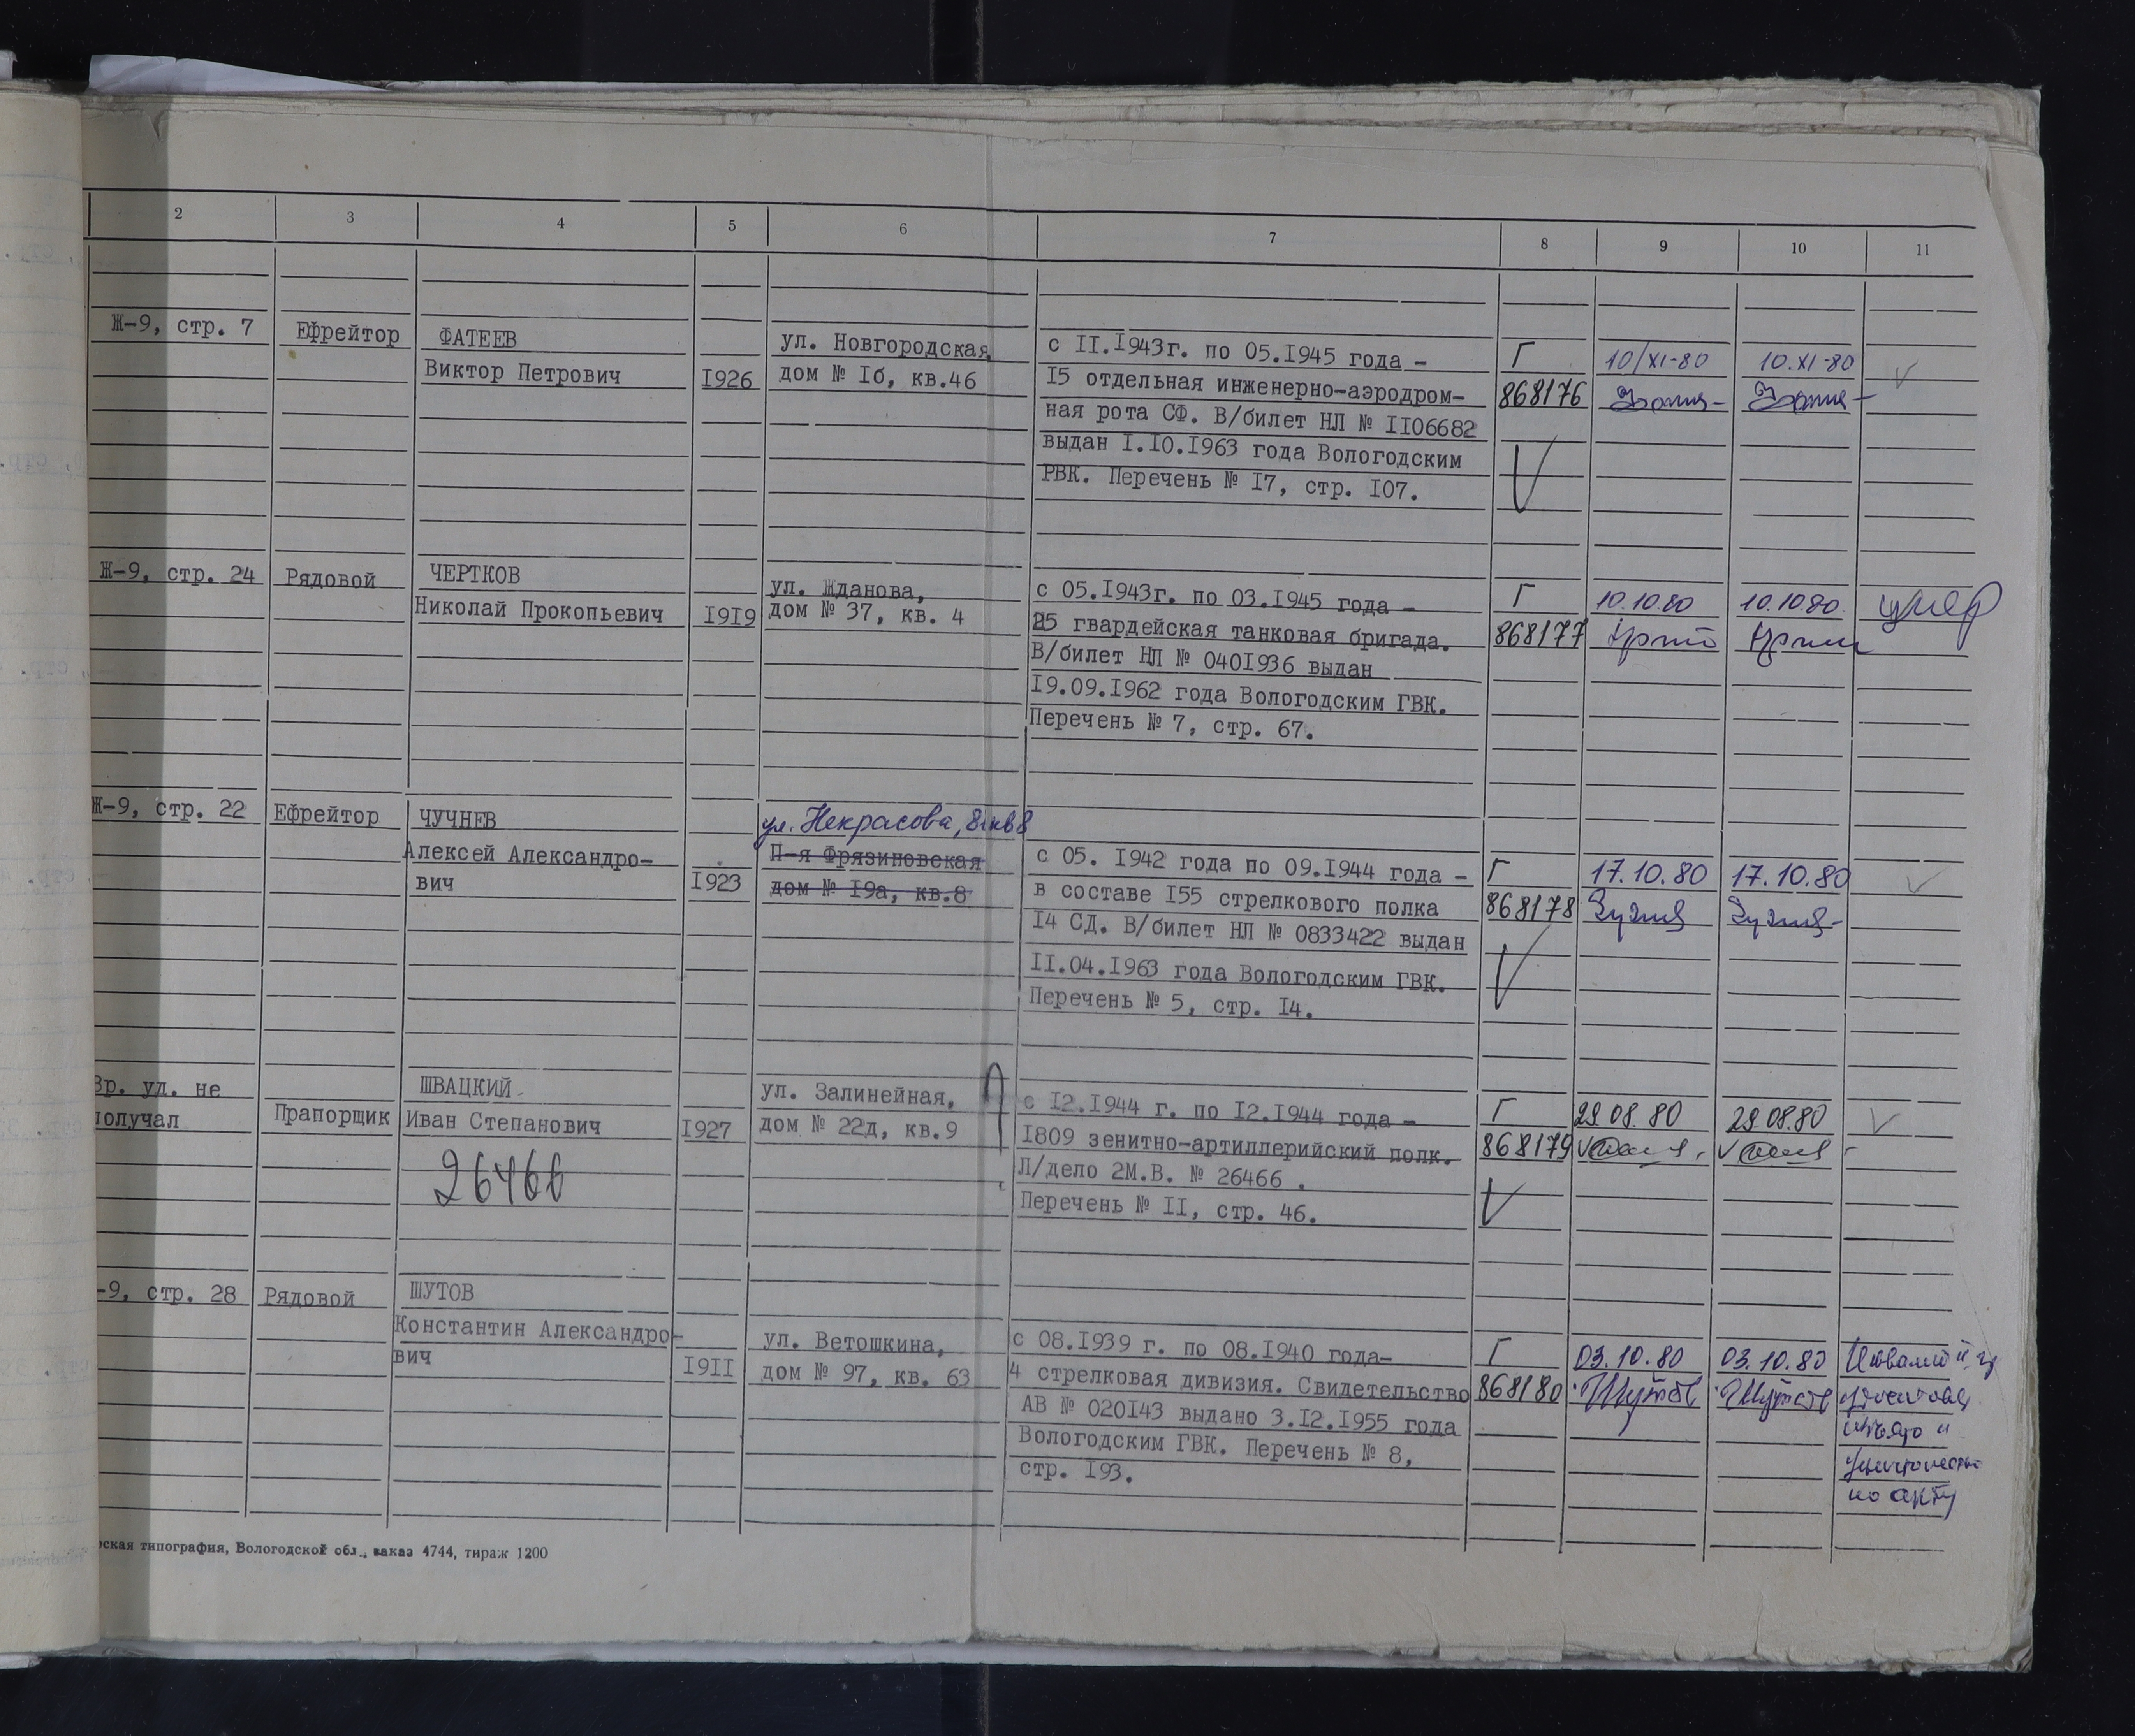 2 3 4 5 6 7 8 9 10 11
Ж-9, стр. 7 Ефрейтор ФАТЕЕВ ул. Новгородская с II.I943г. по 05.I945 года - Г 10/XI-80 10.XI-80
Виктор Петрович I926 дом № Iб, кв.46 I5 отдельная инженерно-аэродром- 868176
ная рота СФ. В/билет НЛ № II06682
выдан I.I0.I963 года Вологодским
РВК. Перечень № I7, стр. I07.
Ж-9, стр. 24 Рядовой ЧЕРТКОВ ул. Жданова, с 05.I943г. по 03.I945 года - Г 10.10.80 10.10.80. умер
Николай Прокопьевич I9I9 дом № 37, кв. 4 25 гвардейская танковая бригада. 868177
В/билет НЛ № 040I936 выдан
I9.09.I962 года Вологодским ГВК.
Перечень № 7, стр. 67.
Ж-9, стр. 22 Ефрейтор ЧУЧНЕВ ул. Некрасова,
Алексей Александро- П-я Фрязиновская с 05. I942 года по 09.I944 года - Г 17.10.80 17.10.80
вич I923 дом № I9а, кв.8 в составе I55 стрелкового полка 868178
I4 СД. В/билет НЛ № 0833422 выдан
II.04.I963 года Вологодским ГВК.
Перечень № 5, стр. I4.
Вр. уд. не ШВАЦКИЙ ул. Залинейная, с I2.I944 г. по I2.I944 года - Г 29.08.80 29.08.80
получал Прапорщик Иван Степанович I927 дом № 22д, кв.9 I809 зенитно-артиллерийский полк. 868179
26466 Л/дело 2М.В. № 26466 .
Перечень № II, стр. 46.
-9, стр. 28 Рядовой ШУТОВ
Константин Александро- ул. Ветошкина, с 08.I939 г. по 08.I940 года- Г 03.10.80 03.10.80
вич I9II дом № 97, кв. 63 4 стрелковая дивизия. Свидетельство 868180 Шутов Шутов
АВ № 020I43 выдано 3.I2.I955 года
Вологодским ГВК. Перечень № 8,
стр. I93.
по акту
ская типография, Вологодской обл., заказ 4744, тираж 1200